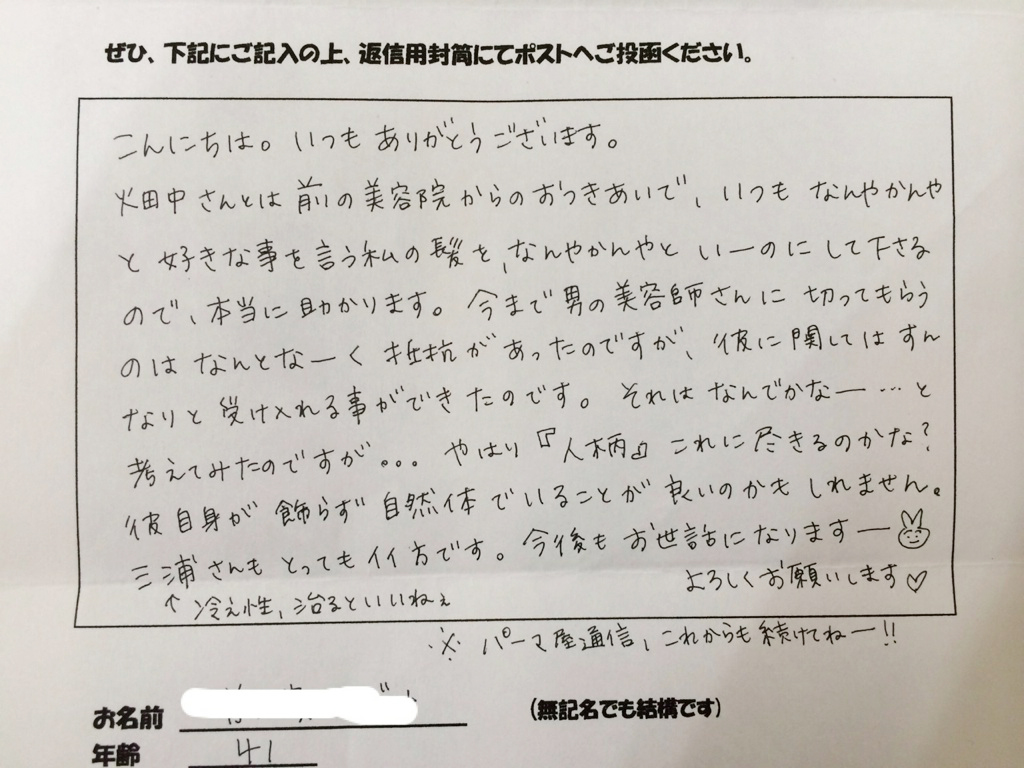 ぜひ、下記にご記入の上、返信用封筒にてポストへご投函ください。
こんにちは。いつも ありがとうございます。
畑中さんとは 前の美容院からのおつきあいで、いつも なんやかんや
と 好きな事を言う私の髪を、なんやかんやと いーのにして下さる
ので、本当に助かります。今まで男の美容師さんに 切ってもらう
のは なんとなーく 抵抗が あったのですが、彼に関しては すん
なりと 受け入れる事ができたのです。それは なんでかなー…と
考えてみたのですが。。。やはり『人柄』これに尽きるのかな？
彼自身が 飾らず 自然体でいることが 良いのかもしれません。
三浦さんも とっても イイ方です。今後も お世話になりますー
↑ 冷え性、治るといいねぇ
よろしくお願いします♡
※ パーマ屋通信、これからも続けてねー!!
お名前
(無記名でも結構です)
年齢 41